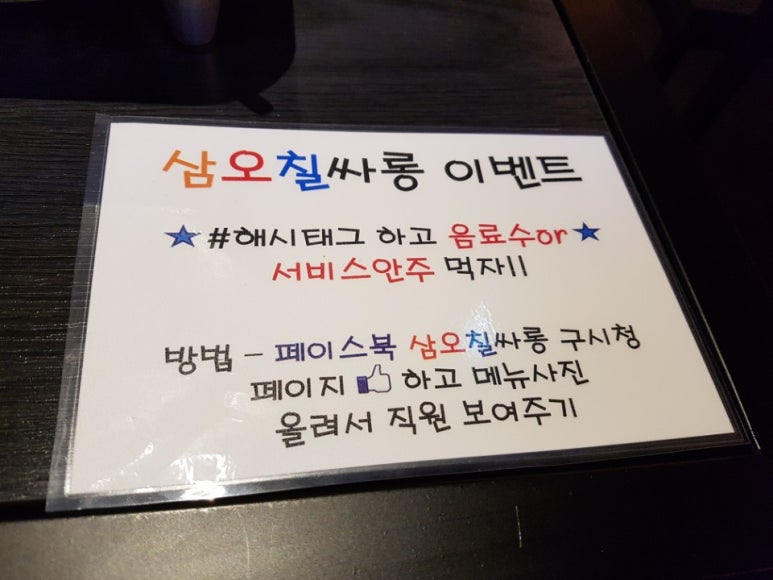 삼오칠싸롱 이벤트
#해시태그 하고 음료수or
서비스안주 먹자!!
방법 - 페이스북 삼오칠싸롱 구시청
페이지 하고 메뉴사진
올려서 직원 보여주기